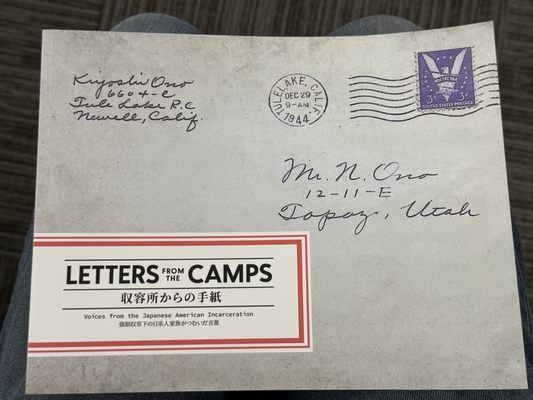 Kiyoshi Ono
6604-C
Tule Lake R.C
Newell, Calif.
TULELAKE, CALIF.
DEC 29
9-AM
1944
WIN THE WAR
3¢ 3¢
UNITED STATES POSTAGE
Mr. N. Ono
12-11-E
Topaz, Utah
LETTERS FROM THE CAMPS
収容所からの手紙
Voices from the Japanese American Incarceration
強制収容下の日系人家族がつむいだ言葉